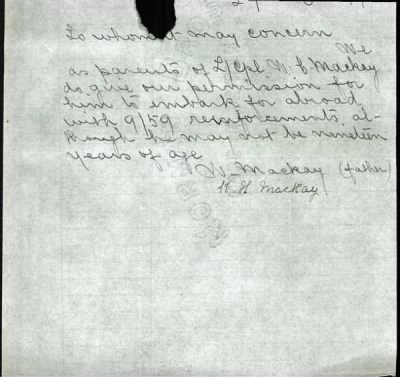 To whom it may concern
We
as parents of L/Cpl W. J. Mackay
do give our permission for
him to embark for abroad
with 9/59 reinforcements, al-
though he may not be nineteen
years of age
W. Mackay (father)
H Mackay